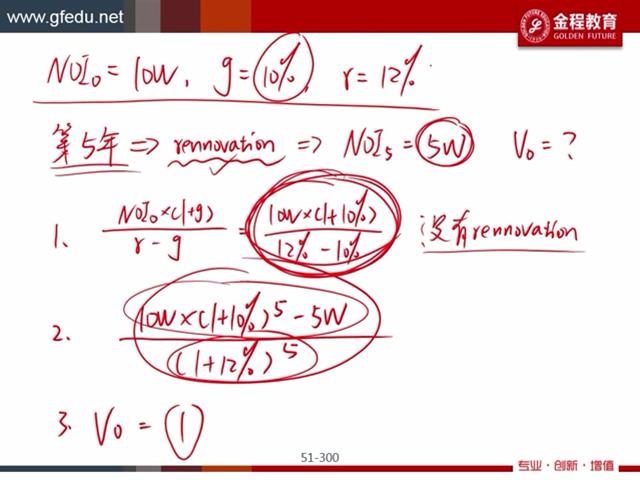 www.gfedu.net
金程教育
GOLDEN FUTURE
NOI₀ = 10W, g = 10%, r = 12%
第5年 => rennovation => NOI₅ = 5W V₀ = ?
1、 NOI₀×(1+g) / r - g = 10W×(1+10%) / 12% - 10% 没有rennovation
2、 10W×(1+10%)⁵ - 5W / (1+12%)⁵
3、 V₀ = 1
51-300
专业·创新·增值